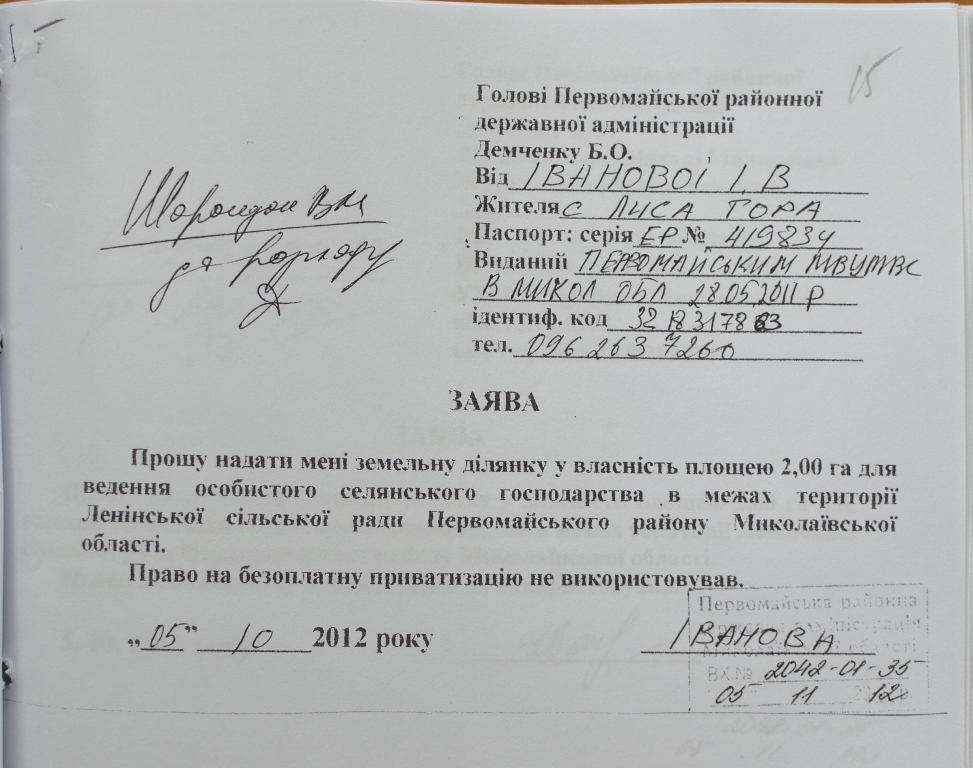 15
Голові Первомайської районної
державної адміністрації
Демченку Б.О.
Від ІВАНОВОЇ І. В
Жителя с ЛИСА ГОРА
Паспорт: серія ЕР № 419834
Виданий ПЕРВОМАЙСЬКИМ
В МИКОЛ ОБЛ 28.05.2011 р
ідентиф. код
тел. 096 263 7260
до розгляду
ЗАЯВА
Прошу надати мені земельну ділянку у власність площею 2,00 га для
ведення особистого селянського господарства в межах території
Ленінської сільської ради Первомайського району Миколаївської
області.
Право на безоплатну приватизацію не використовував.
„05” 10 2012 року
ІВАНОВА
Первомайська районна
державна адміністрація
Миколаївської області
ВХ.№ 2042-01-35
05 11 12